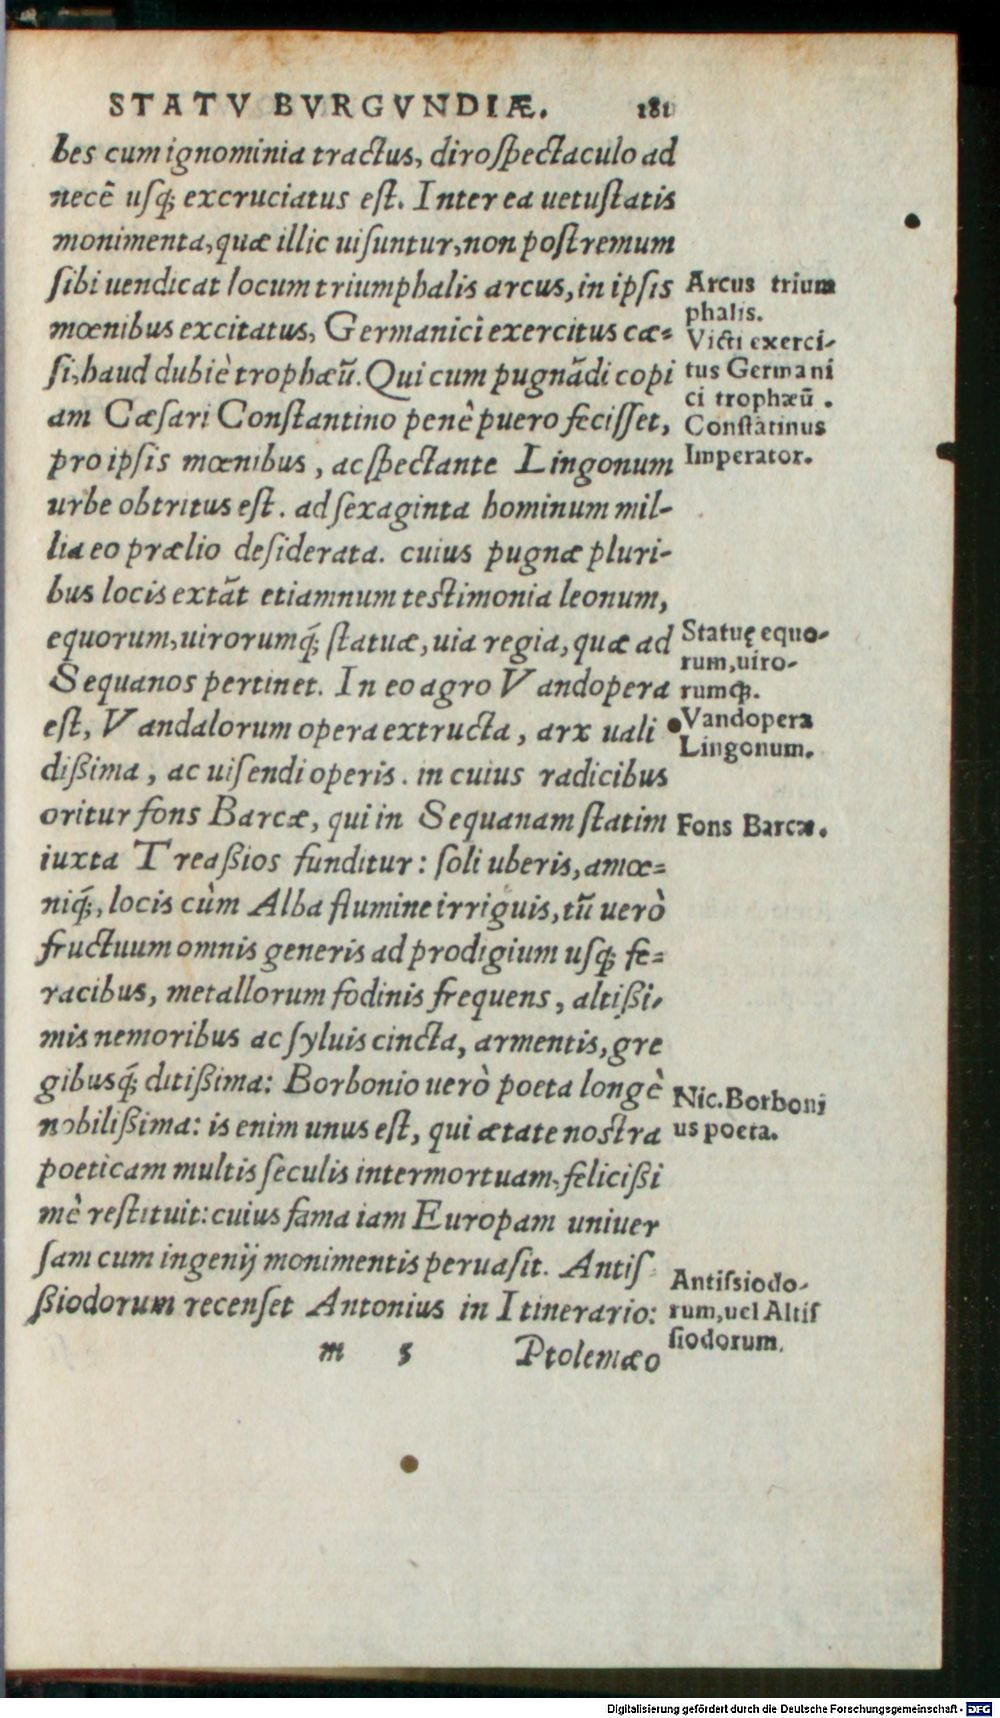 STATV BVRGVNDIÆ. 181
bes cum ignominia tractus, diro spectaculo ad
necē usq; excruciatus est. Inter ea uetustatis
monimenta, quæ illic uisuntur, non postremum
sibi uendicat locum triumphalis arcus, in ipsis
mœnibus excitatus, Germanici exercitus cæ=
si, haud dubiè trophæū. Qui cum pugnãdi copi
am Cæsari Constantino penè puero fecisset,
pro ipsis mœnibus, ac spectante Lingonum
urbe obtritus est. ad sexaginta hominum mil-
lia eo prælio desiderata. cuius pugnæ pluri-
bus locis extãt etiamnum testimonia leonum,
equorum, uirorumq́; statuæ, uia regia, quæ ad
Sequanos pertinet. In eo agro Vandopera
est, Vandalorum opera extructa, arx uali
dißima, ac uisendi operis. in cuius radicibus
oritur fons Barcæ, qui in Sequanam statim
iuxta Treaßios funditur: soli uberis, amœ=
niq́;, locis cùm Alba flumine irriguis, tũ uerò
fructuum omnis generis ad prodigium usq; fe=
racibus, metallorum fodinis frequens, altißi-
mis nemoribus ac syluis cincta, armentis, gre
gibusq́; ditißima: Borbonio uerò poeta longè
nobilißima: is enim unus est, qui ætate nostra
poeticam multis seculis intermortuam, felicißi
mè restituit: cuius fama iam Europam uniuer
sam cum ingenij monimentis peruasit. Antis
ßiodorum recenset Antonius in Itinerario:
m 5 Ptolemæo
Arcus trium
phalis.
Victi exerci-
tus Germani
ci trophæū.
Constãtinus
Imperator.
Statuę equo-
rum, uiro-
rumq;.
Vandopera
Lingonum.
Fons Barcæ.
Nic. Borboni
us poeta.
Antissiodo-
rum, uel Altis
siodorum.
Digitalisierung gefördert durch die Deutsche Forschungsgemeinschaft - DFG